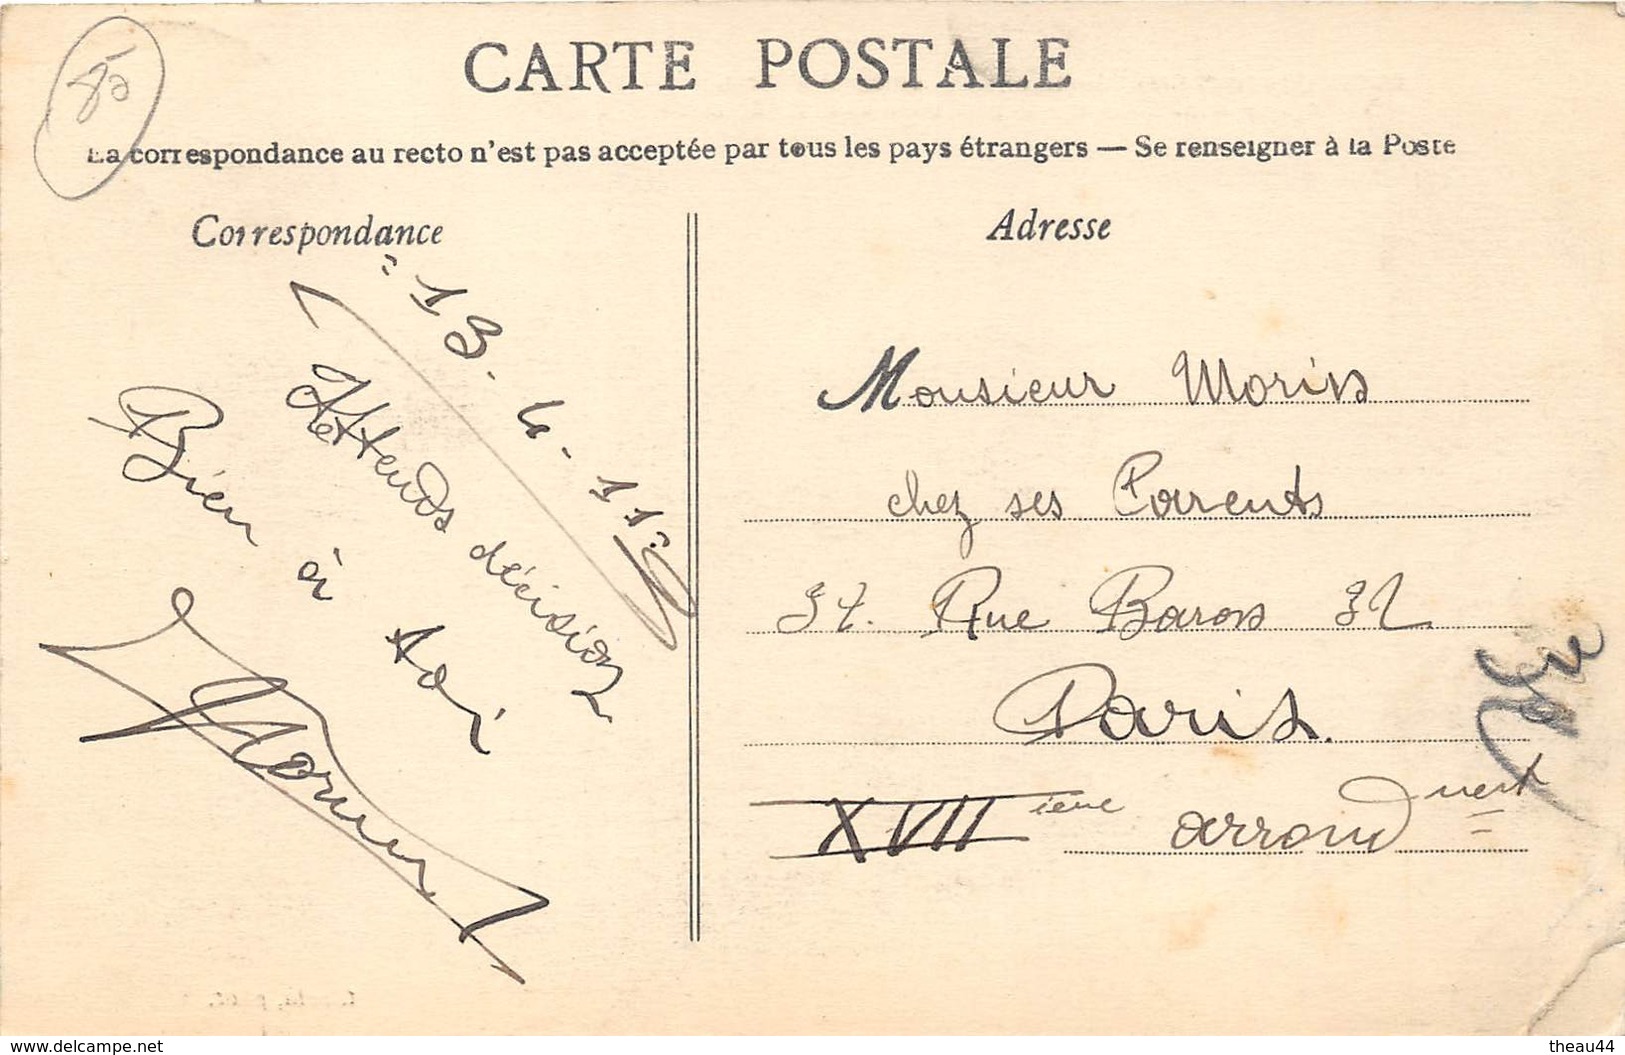 85
CARTE POSTALE
La correspondance au recto n'est pas acceptée par tous les pays étrangers — Se renseigner à la Poste
Correspondance
"13-4-11"
Attends décision
Bien à toi
Adresse
Monsieur Morin
chez ses Parents
Rue Baron 32
Paris.
XVII ième arrond
www.delcampe.net
theau44